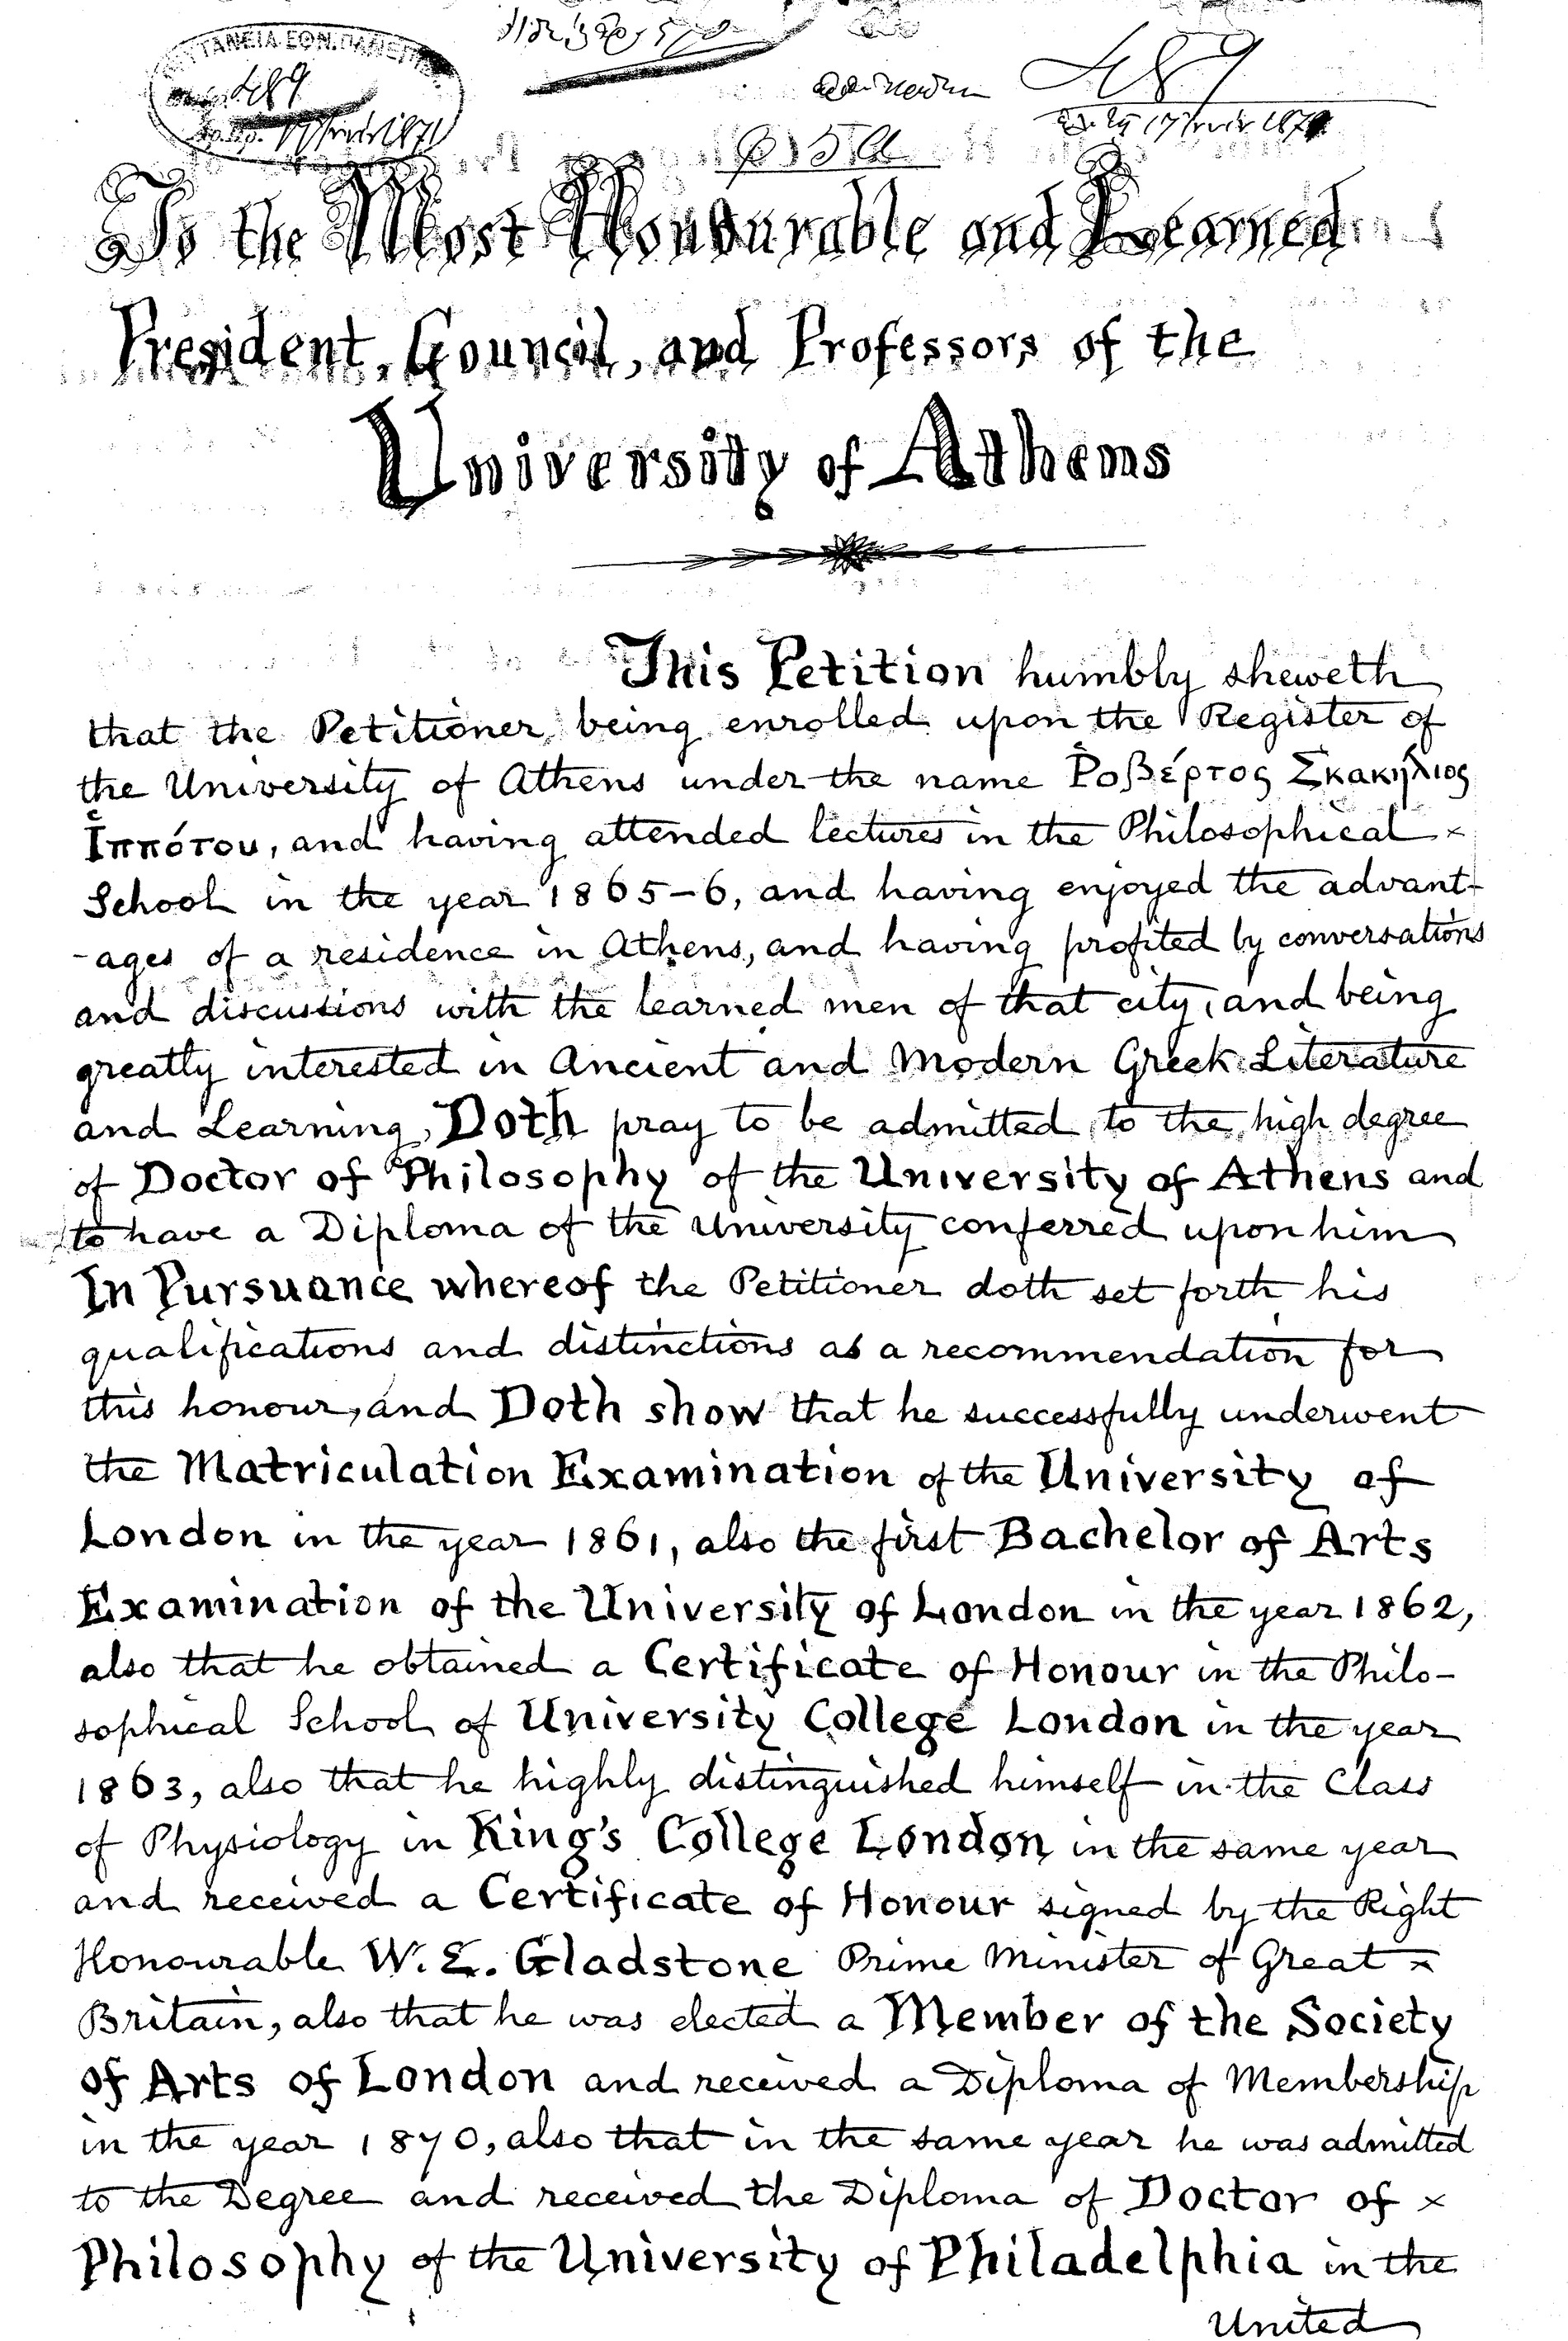 489
489
To the Most Honourable and Learned
President, Council, and Professors of the
University of Athens
This Petition humbly sheweth
that the Petitioner, being enrolled upon the Register of
the University of Athens under the name Ῥοβέρτος Σκακήλιος
Ἱππότου, and having attended lectures in the Philosophical ×
School in the year 1865-6, and having enjoyed the advant-
-ages of a residence in Athens, and having profited by conversations
and discussions with the learned men of that city, and being
greatly interested in Ancient and Modern Greek Literature
and Learning, Doth pray to be admitted to the high degree
of Doctor of Philosophy of the University of Athens and
to have a Diploma of the University conferred upon him
In Pursuance whereof the Petitioner doth set forth his
qualifications and distinctions as a recommendation for
this honour, and Doth show that he successfully underwent
the Matriculation Examination of the University of
London in the year 1861, also the first Bachelor of Arts
Examination of the University of London in the year 1862,
also that he obtained a Certificate of Honour in the Philo-
sophical School of University College London in the year
1863, also that he highly distinguished himself in the Class
of Physiology in King's College London in the same year
and received a Certificate of Honour signed by the Right
Honourable W. E. Gladstone Prime Minister of Great ×
Britain, also that he was elected a Member of the Society
of Arts of London and received a Diploma of Membership
in the year 1870, also that in the same year he was admitted
to the Degree and received the Diploma of Doctor of ×
Philosophy of the University of Philadelphia in the
United